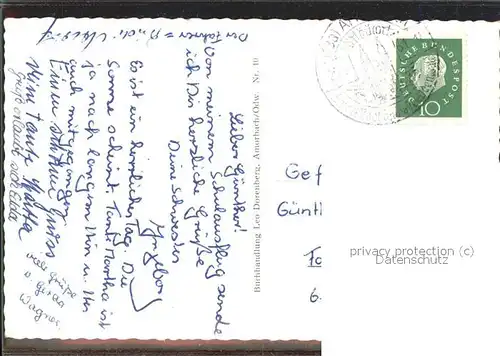 Lieber Günther!
Von meinem Schulausflug sende
ich Dir herzliche Grüße
Deine Schwester
Ingeborg
Es ist ein herrlicher Tag. Die
Sonne scheint. Tante Martha ist
ja nach langem Hin u. Her
auch mitgegangen.
Einen schönen Gruss
Deine Tante Martha
Gruß
viele Grüße
Wagner
Der Fahrer =
Buchhandlung Leo Dorenberg, Amorbach/Odw. Nr. 10
DEUTSCHE BUNDESPOST
10
Gef
Günth
privacy protection (c)
Datenschutz
6.